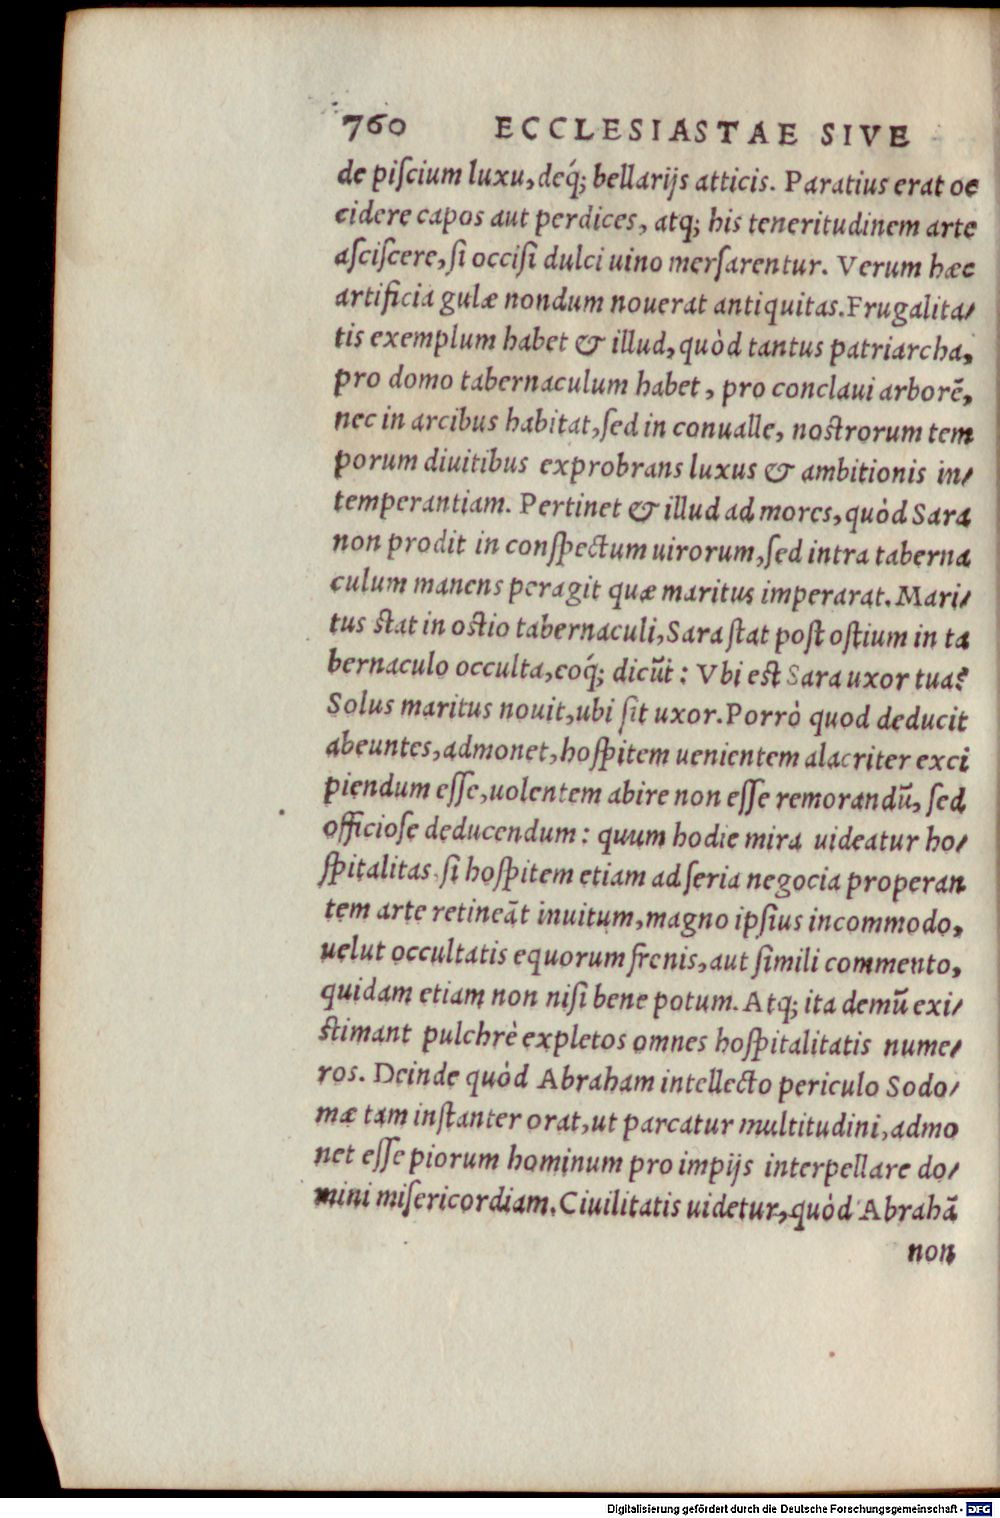 760 ECCLESIASTAE SIVE
de piſcium luxu, deq́; bellarijs atticis. Paratius erat oc
cidere capos aut perdices, atq; his teneritudinem arte
aſciſcere, ſi occiſi dulci uino merſarentur. Verum hæc
artificia gulæ nondum nouerat antiquitas. Frugalita/
tis exemplum habet & illud, quòd tantus patriarcha,
pro domo tabernaculum habet, pro conclaui arborẽ,
nec in arcibus habitat, ſed in conualle, noſtrorum tem
porum diuitibus exprobrans luxus & ambitionis in/
temperantiam. Pertinet & illud ad mores, quòd Sara
non prodit in conſpectum uirorum, ſed intra taberna
culum manens peragit quæ maritus imperarat. Mari/
tus ſtat in oſtio tabernaculi, Sara ſtat poſt oſtium in ta
bernaculo occulta, eoq́; dicũt: Vbi eſt Sara uxor tua?
Solus maritus nouit, ubi ſit uxor. Porrò quod deducit
abeuntes, admonet, hoſpitem uenientem alacriter exci
piendum eſſe, uolentem abire non eſſe remorandũ, ſed
officioſe deducendum: quum hodie mira uideatur ho/
ſpitalitas, ſi hoſpitem etiam ad ſeria negocia properan
tem arte retineãt inuitum, magno ipſius incommodo,
uelut occultatis equorum frenis, aut ſimili commento,
quidam etiam non niſi bene potum. Atq; ita demũ exi/
ſtimant pulchrè expletos omnes hoſpitalitatis nume/
ros. Deinde quòd Abraham intellecto periculo Sodo/
mæ tam inſtanter orat, ut parcatur multitudini, admo
net eſſe piorum hominum pro impijs interpellare do/
mini miſericordiam. Ciuilitatis uidetur, quòd Abrahã
non
Digitalisierung gefördert durch die Deutsche Forschungsgemeinschaft - DFG